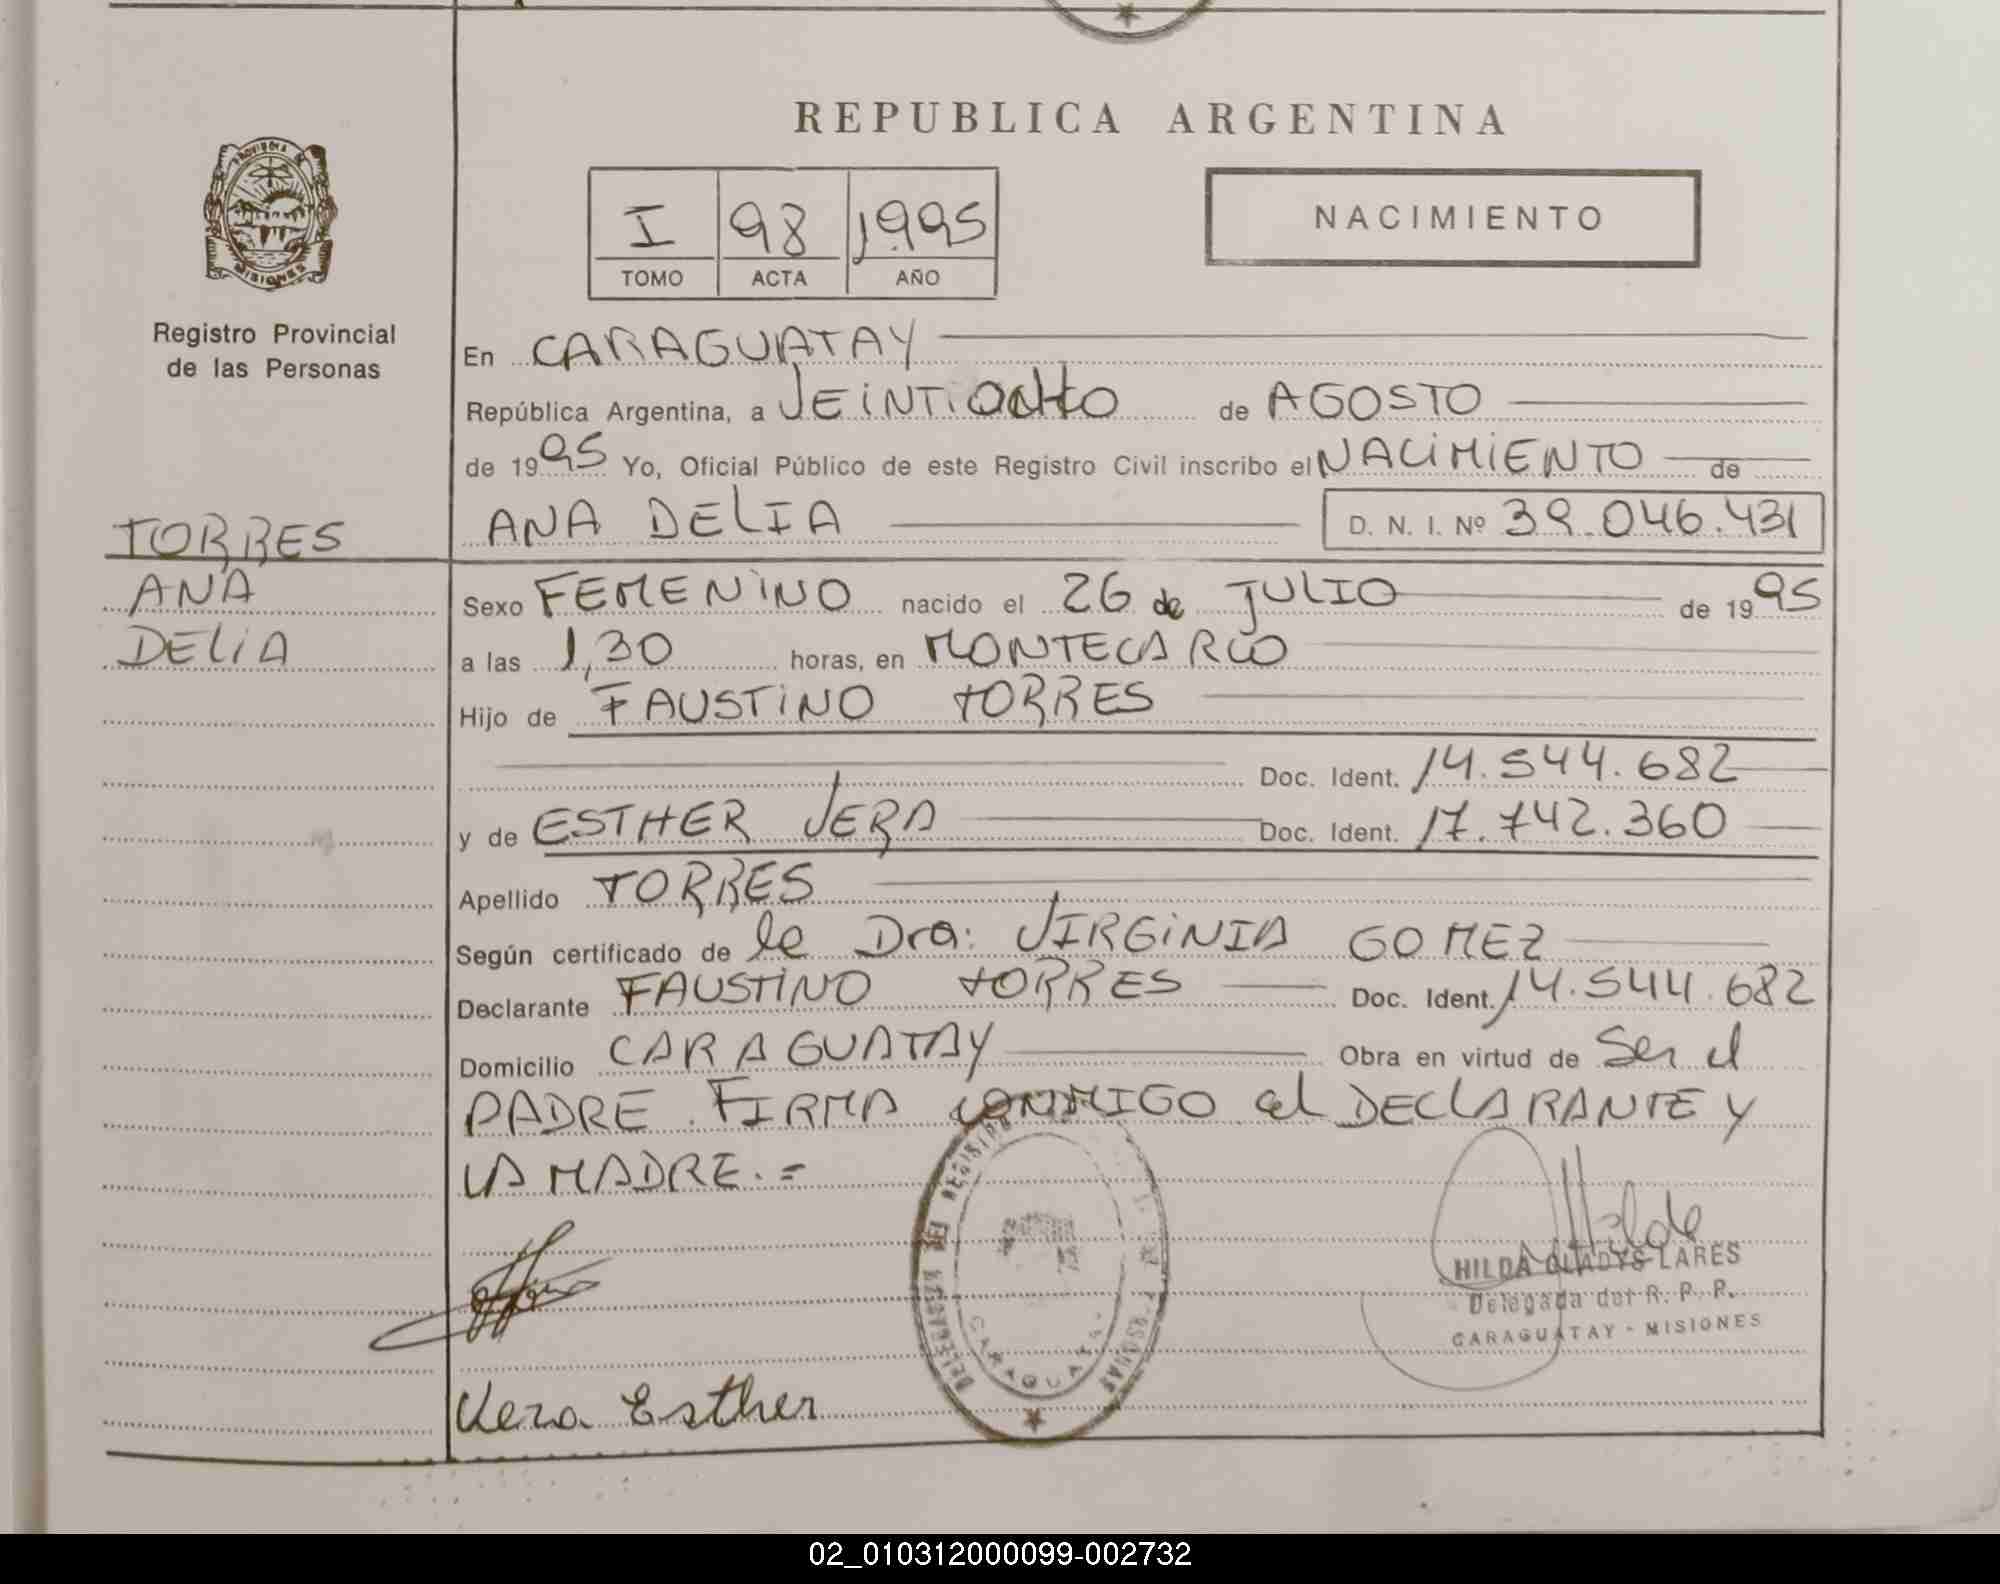 REPUBLICA ARGENTINA
PROVINCIA DE MISIONES
I 98 1995
TOMO ACTA AÑO
NACIMIENTO
Registro Provincial
de las Personas
En CARAGUATAY
República Argentina, a VEINTIOCHO de AGOSTO
de 1995 Yo, Oficial Público de este Registro Civil inscribo el NACIMIENTO de
ANA DELIA D. N. I. Nº 39.046.431
TORRES
ANA
DELIA
Sexo FEMENINO nacido el 26 de JULIO de 1995
a las 1,30 horas, en MONTECARLO
Hijo de FAUSTINO TORRES
Doc. Ident. 14.544.682
y de ESTHER VERA Doc. Ident. 17.742.360
Apellido TORRES
Según certificado de la Dra: VIRGINIA GOMEZ
Declarante FAUSTINO TORRES Doc. Ident. 14.544.682
Domicilio CARAGUATAY Obra en virtud de Ser el
PADRE. FIRMA CONMIGO el DECLARANTE Y
LA MADRE.=
Hilde
HILDA GLADYS LARES
Delegada del R. P. P.
CARAGUATAY - MISIONES
CARAGUATAY
Vera Esther
02_010312000099-002732